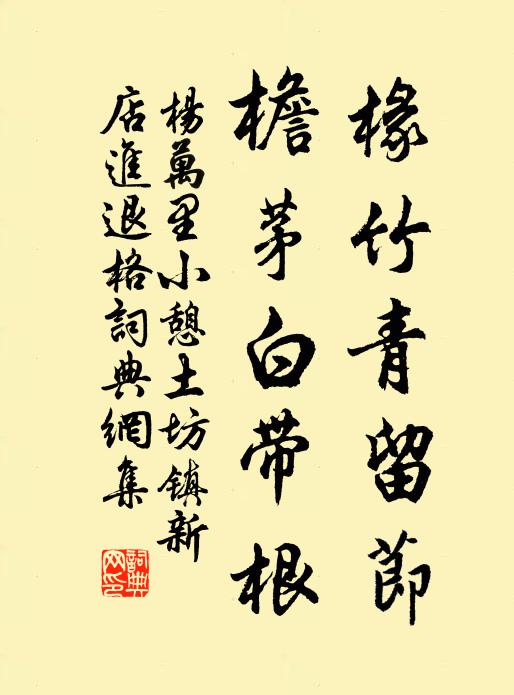 椽竹青留節
檐茅白帶根
楊萬里小憩土坊鎮新
店進退格詞典網集
詞典
网印